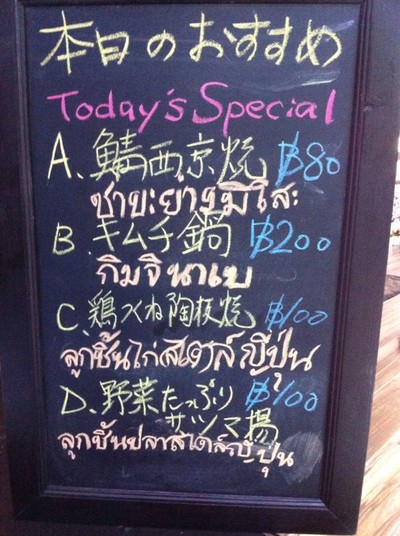 本日のおすすめ
Today's Special
A、鯖西京焼 ฿80
ซาบะย่างมิโสะ
B、キムチ鍋 ฿200
กิมจินาเบ
C、鶏つくね陶板焼 ฿100
ลูกชิ้นไก่สไตล์ญี่ปุ่น
D、野菜たっぷり ฿100
サツマ揚
ลูกชิ้นปลาสไตล์ญี่ปุ่น